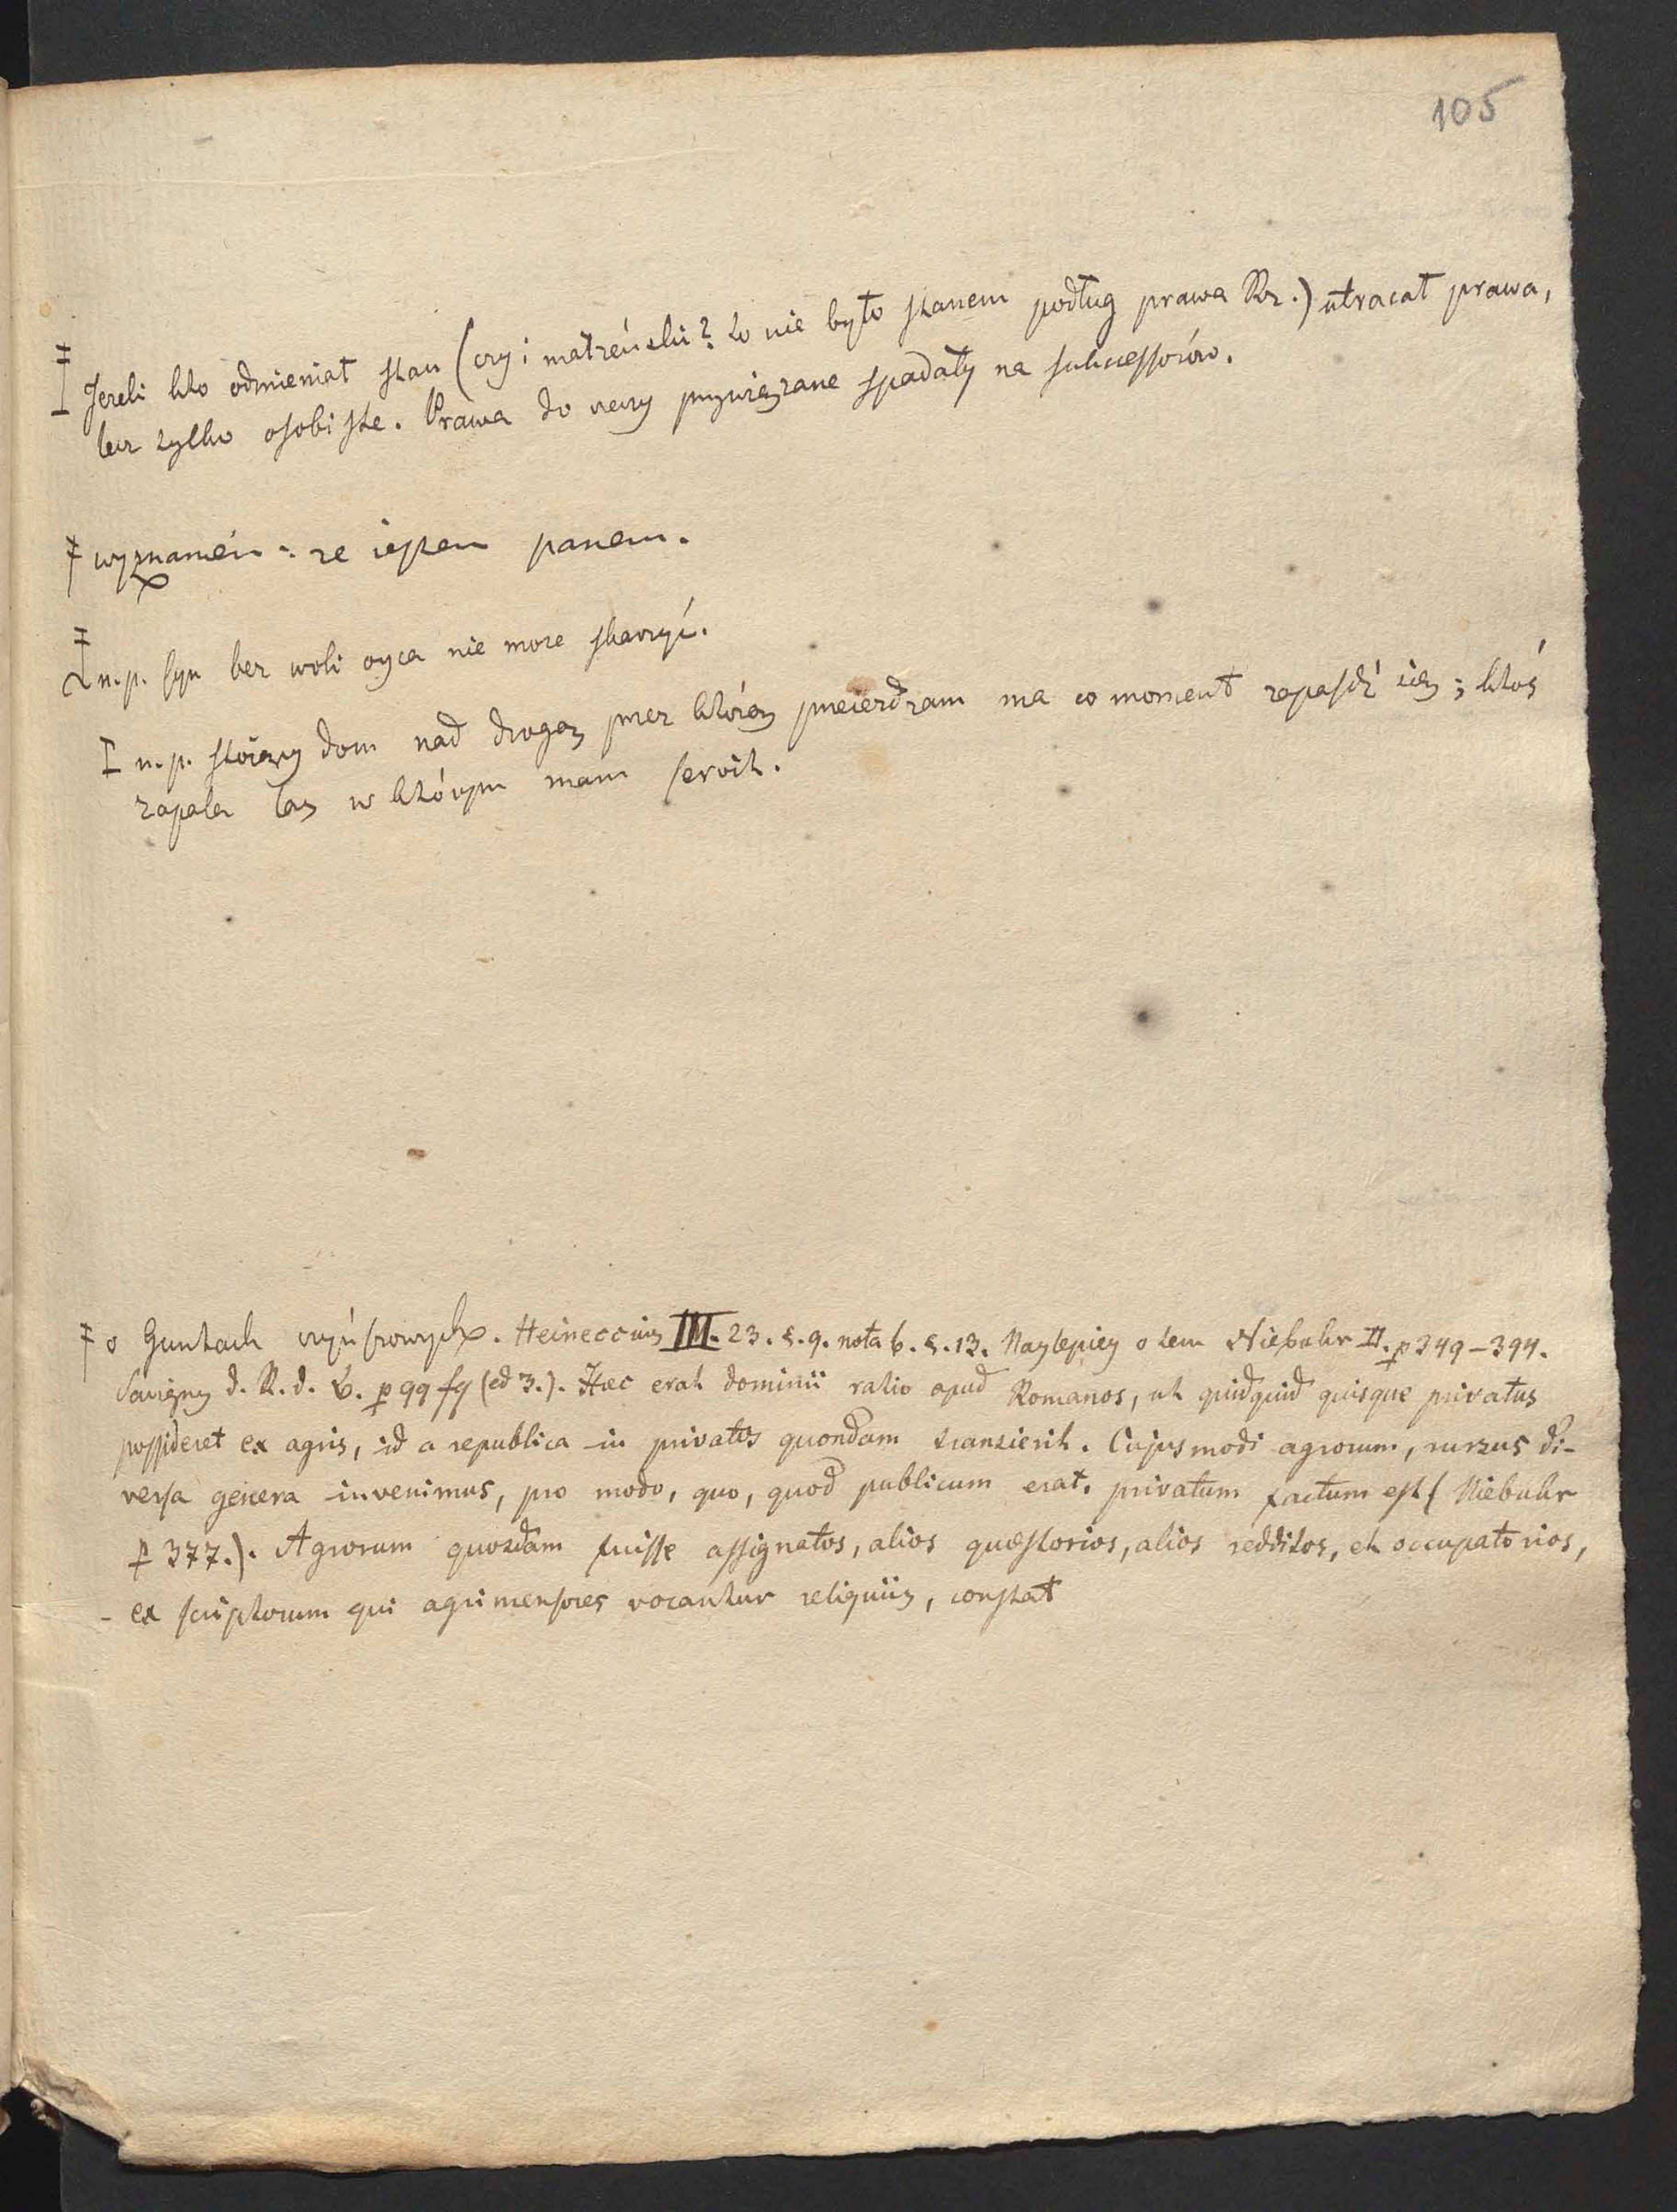 105
Jezeli kto odmieniał stan (czy i małzeński? to nie było stanem podług prawa Rz.) utracał prawa,
lecz tylko osobiste. Prawa do rzeczy przywiązane spadały na sukcessorów.
wyznanién: ze iestem panem.
n.p. syn bez woli oyca nie moze skarzyć.
n.p. stoiący dom nad drogą przez którą przeieżdzam ma co moment zapaść się; ktoś
zapala las w którym mam servit.
o Guntach czyńszowych. Heineccius III. 23. §. 9. nota b. §. 13. Naylepiey o tem Niebuhr II. p 349–394.
Savigny d. R. d. B. p 99 sq (ed 3.). Hæc erat dominii ratio apud Romanos, ut quidquid quisque privatus
possideret ex agris, id a republica in privatos quondam transierit. Cujusmodi agrorum, rursus di-
versa genera invenimus, pro modo, quo, quod publicum erat, privatum factum est (Niebuhr
p 377.). Agrorum quosdam fuisse assignatos, alios quæstorios, alios redditos, et occupatorios,
- ex scriptorum qui agrimensores vocantur reliquiis, constat